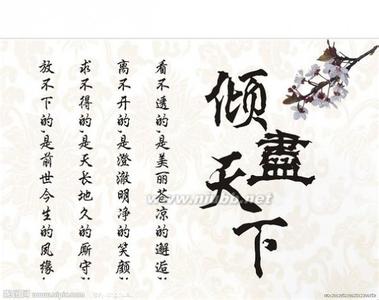 倾盡天下
看不透的，是美丽苍凉的邂逅；
离不开的，是澄澈明净的笑颜；
求不得的，是天长地久的厮守；
放不下的，是前世今生的風缘
www.nipic.com